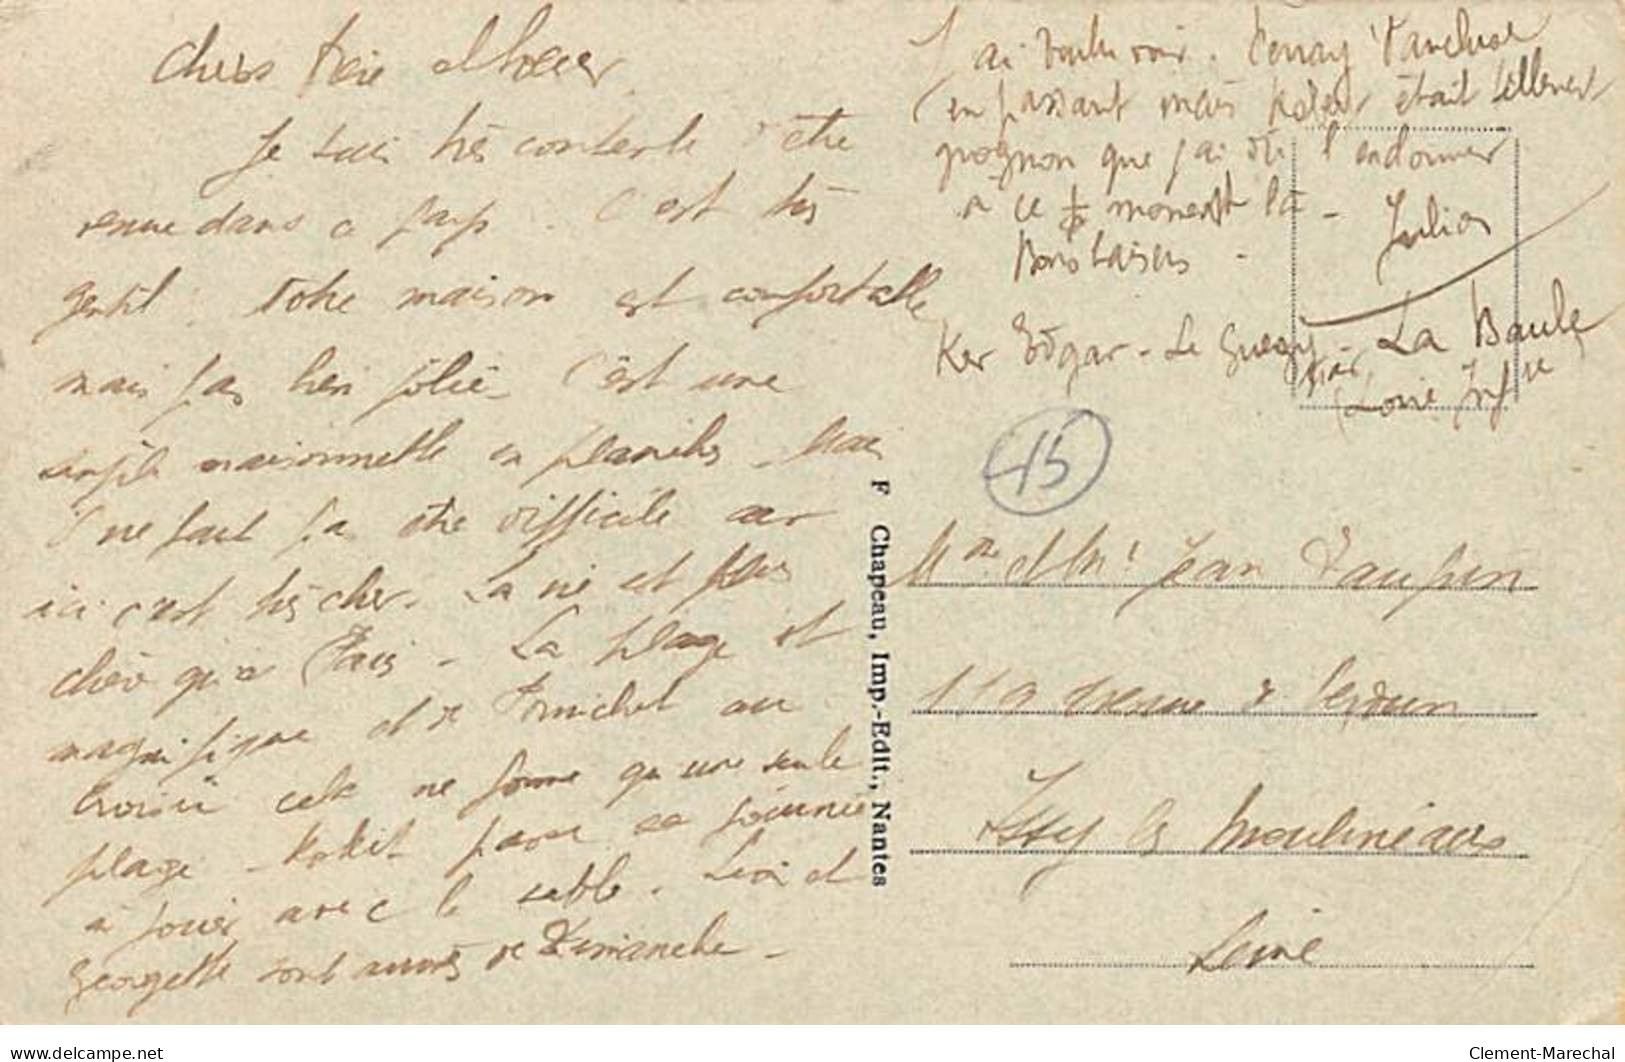 Je suis très contente d'être
venue dans ce pays. C'est très
gentil. Notre maison est confortable
mais pas bien jolie. C'est une
simple maisonnette en planches. Mais
il ne faut pas être difficile car
ici c'est très cher. La vie est plus
chère qu'à Paris. La plage est
magnifique et de Pornichet au
Croisic cela ne forme qu'une seule
plage. passe sa journée
à jouer avec le sable. et
Georgette sont arrivés de Dimanche.
J'ai voulu voir
en passant mais était tellement
grognon que j'ai dû l'endormer
à ce moment là.
Bons baisers.
Ker Edgar - Le - La Baule
Loire Infre
15
Mme et Mr Jean Taupin
119 avenue de Verdun
Issy les Moulineaux
Seine
F Chapeau, Imp.-Edit., Nantes
www.delcampe.net
Clement-Marechal